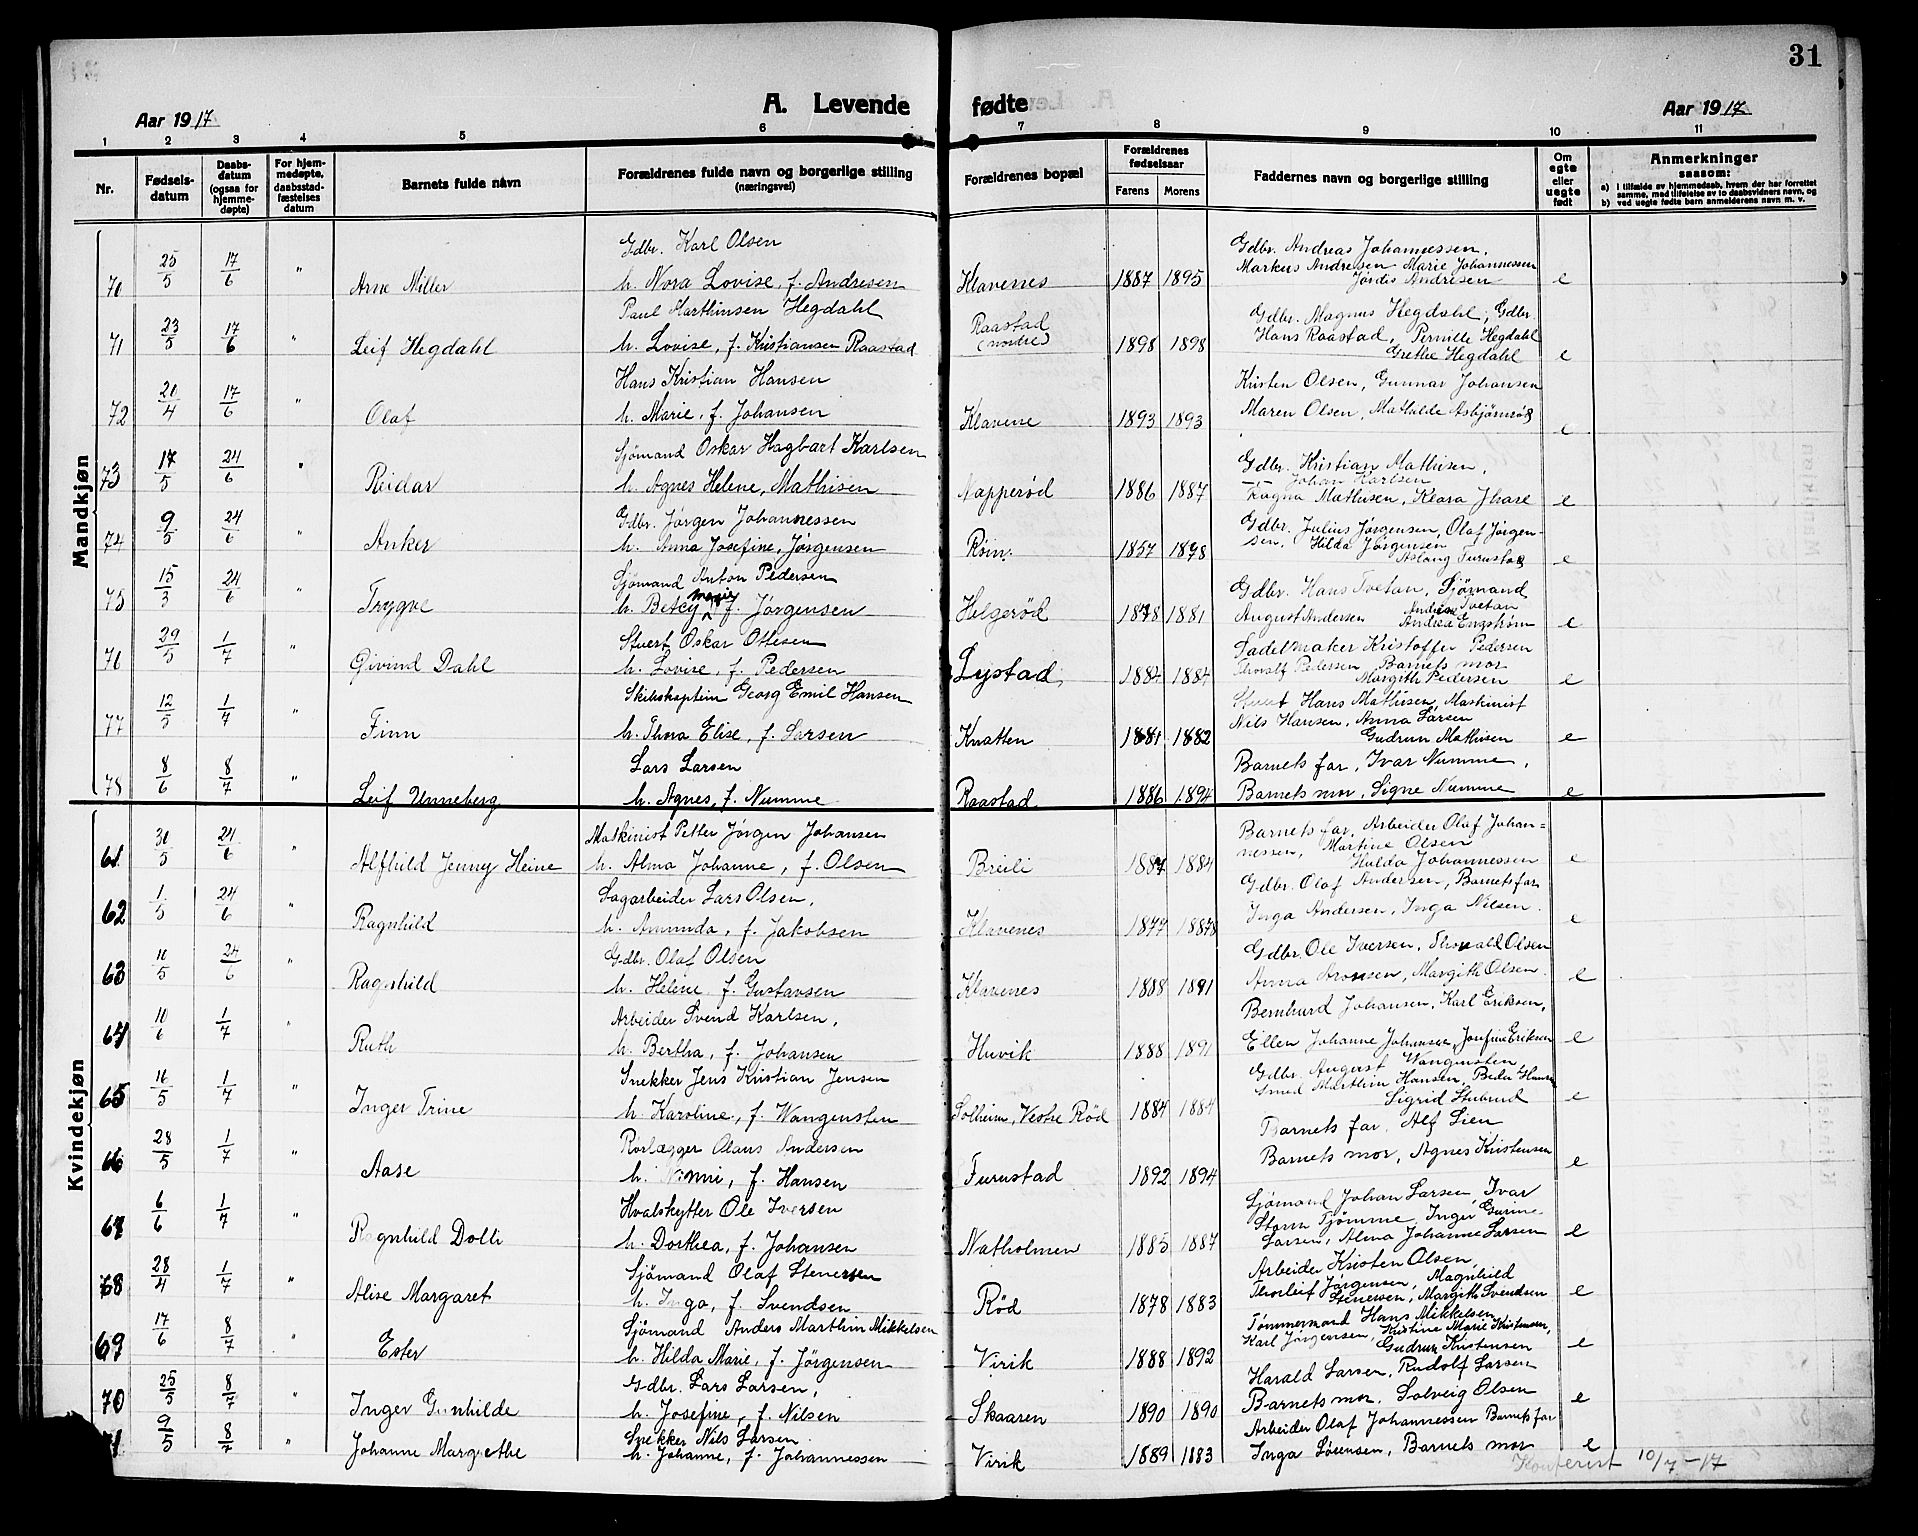 31
A. Levende fødte
Aar 1917
Aar 1917
1 2 3 4 5 6 7 8 9 10 11
Nr.
Fødsels-datum
Daabs-datum (ogsaa for hjemme-døpte)
For hjem-medøpte, daabsstad-fæstelses datum
Barnets fulde navn
Forældrenes fulde navn og borgerlige stilling (næringsvei)
Forældrenes bopæl
Forældrenes fødselsaar
Farens Morens
Faddernes navn og borgerlige stilling
Om egte eller uegte født
Anmerkninger saasom:
a) i tilfælde av hjemmedaab, hvem der har forrettet samme, med tilføielse av to daabsvidners navn, og
b) ved uegte fødte barn anmelderens navn m. v.
Mandkjøn
Gdbr. Karl Olsen
Gdbr. Andreas Johannessen,
Markus Andresen Marie Johannessen
70 25/5 17/6 " Arne Miller h. Nora Lovise, f. Andresen Klavenes 1887 1895 Jørdis Andrésen e
Paul Marthinsen Hegdahl
Gdbr. Magnus Hegdahl, Gdbr.
Raastad (nordre)
Hans Raastad, Pernille Hegdahl
71 23/5 17/6 " Leif Hegdahl h. Lovise, f. Kristiansen Raastad 1898 1898 Grethe Hegdahl e
Hans Kristian Hansen
Kristen Olsen, Gunnar Johansen
72 20/4 17/6 " Olaf h. Marie, f. Johansen Klavene 1893 1893 Maren Olsen, Mathilde Asbjørnrød e
Sjømand Oskar Hagbart Karlsen
Gdbr. Kristian Mathisen,
-"- Johan Karlsen
73 17/5 24/6 " Reidar h. Agnes Helene, Mathisen Napperød 1886 1887 Ragna Mathisen, Klara Jhare e
Gdbr. Jørgen Johannessen
Gdbr. Julius Jørgensen, Olaf Jørgen-
sen, Hilda Jørgensen
74 9/5 24/6 " Anker h. Anna Josefine, Jørgensen Röin 1857 1878 Aslaug Furustad e
Sjømand Anton Pedersen
Gdbr. Hans Tvetan, Sjømand
75 15/3 24/6 " Trygve h. Betcy Marie, f. Jørgensen Helgerød 1878 1881 August Andersen Andrea Tvetan
Andrea Engstrøm e
Stuert Oskar Ottesen
Sadelmaker Kristoffer Pedersen
76 29/5 1/7 " Øivind Dahl h. Lovise, f. Pedersen Lystad 1884 1884 Thoralf Pedersen, Barnets mor
Margith Pedersen e
Skibskaptein Georg Emil Hansen
Stuert Hans Mathisen, Maskinist
Nils Hansen, Anna Larsen
77 12/5 1/7 " Finn h. Thora Elise, f. Larsen Knatten 1881 1882 Gudrun Mathisen e
Lars Larsen
Barnets far, Ivar Numme,
78 8/6 8/7 " Leif Unneberg h. Agnes, f. Numme Raastad 1886 1894 Barnets mor, Signe Numme e
Kvindekjøn
Maskinist Petter Jörgen Johansen
Barnets far, Arbeider Olaf Johan-
nessen, Martine Olsen
61 30/5 24/6 " Alfhild Jenny Heine h. Alma Johanne, f. Olsen Breili 1887 1884 Hulda Johannessen e
Sagarbeider Lars Olsen,
Gdbr. Olaf Andersen, Barnets far
62 1/5 24/6 " Ragnhild h. Amunda, f. Jakobsen Klavenes 1877 1878 Inga Andersen, Inga Nilsen e
Gdbr. Olaf Olsen
Gdbr. Ole Iversen, Thorvald Olsen
63 11/5 24/6 " Ragnhild h. Helene f. Gustavsen Klavenes 1888 1891 Anna Aronsen, Margith Olsen e
Arbeider Svend Karlsen,
Bernhard Johansen, Karl Eriksen,
64 10/6 1/7 " Ruth h. Bertha, f. Johansen Huvik 1888 1891 Ellen Johanne Johansen, Josefine Eriksen e
Snekker Jens Kristian Jensen
Gdbr. August Wangensten
Smed Marthin Hansen, Beda Hansen
65 16/5 1/7 " Inger Trine h. Karoline, f. Wangensten Solheim, Vestre Rød 1884 1884 Sigrid Stubrud e
Rørlægger Olaus Andersen
Barnets far, Alf Lien
66 28/5 1/7 " Aase h. Nanni, f. Hansen Furustad 1892 1894 Barnets mor, Agnes Kristensen e
Hvalskytter Ole Iversen
Sjømand Johan Larsen, Ivar
Storm Tjømme, Inger Gurine
67 6/6 1/7 " Ragnhild Dolli h. Dorthea, f. Johansen Natholmen 1885 1887 Larsen, Alma Johanne Larsen e
Sjømand Olaf Stenersen
Arbeider Kristen Olsen,
Thorleif Jørgensen, Magnhild
68 28/4 1/7 " Alise Margaret h. Inga, f. Svendsen Rød 1878 1883 Stenersen, Margith Svendsen e
Sjømand Anders Marthin Mikkelsen
Tømmermand Hans Mikkelsen
Karl Jørgensen, Kristine Marie Kristensen,
69 17/6 8/7 " Ester h. Hilda Marie, f. Jørgensen Virik 1888 1892 Gudrun Kristensen e
Gdbr. Lars Larsen,
Harald Larsen, Rudolf Larsen
70 25/5 8/7 " Inger Gunhilde h. Josefine, f. Nilsen Skaaren 1890 1890 Barnets mor, Solveig Olsen e
Snekker Nils Larsen
Arbeider Olaf Johannessen Barnets far
71 9/5 8/7 " Johanne Margrethe h. Johanne, f. Johannessen Virik 1889 1883 Inga Sørensen, Barnets mor e
Konferert 10/7-17